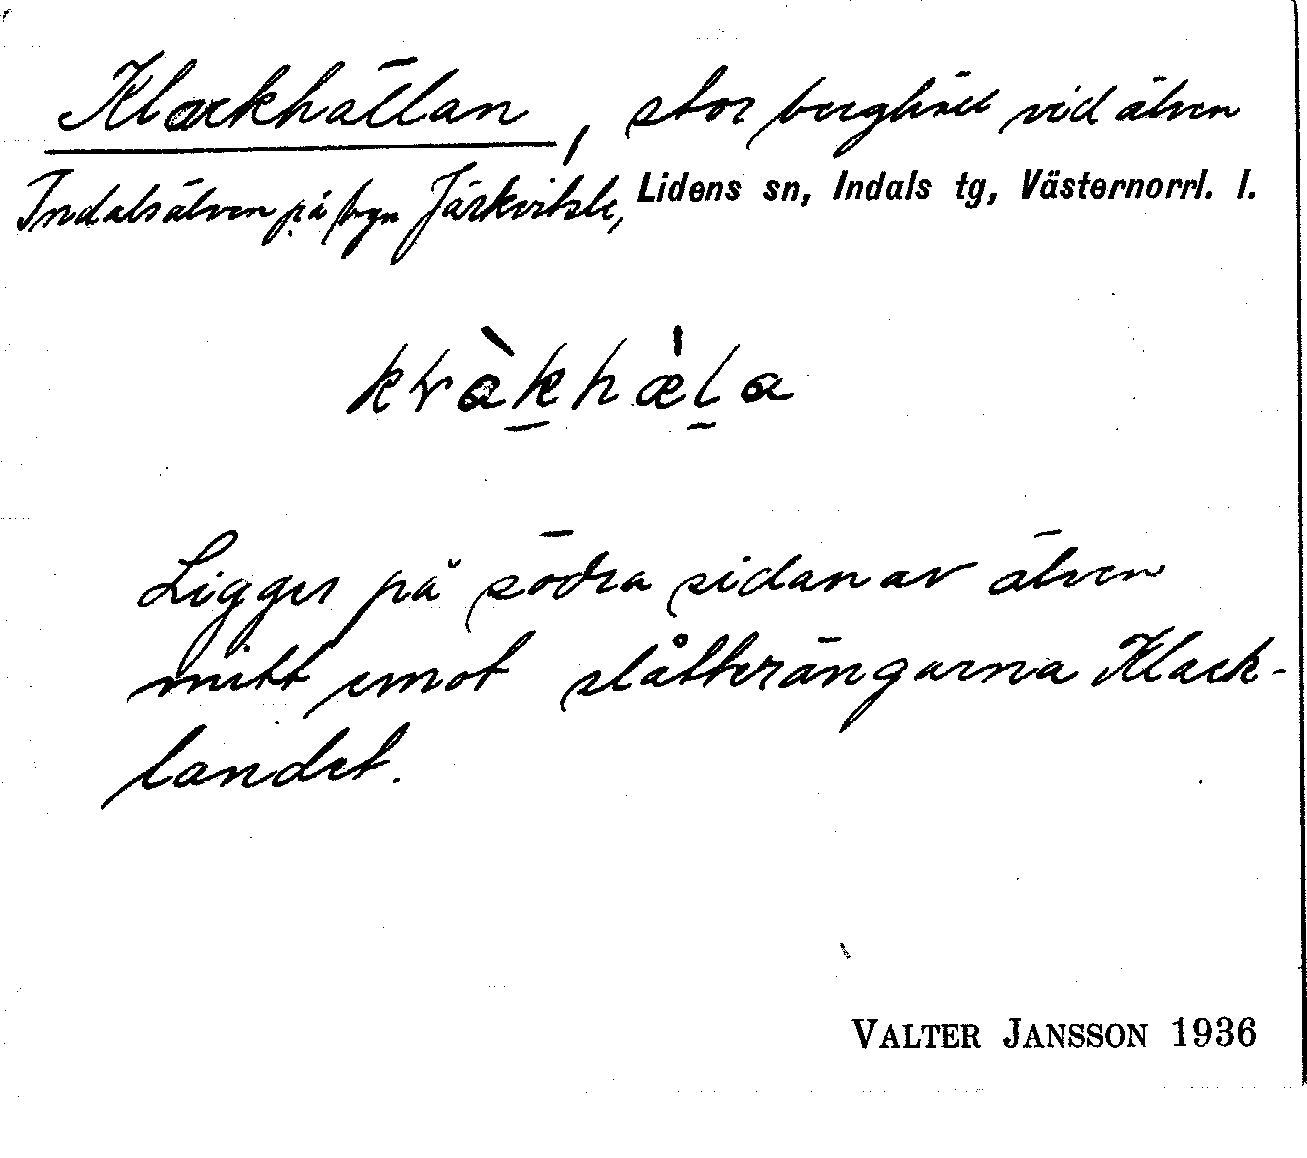 Klackhällan, stor berghäll vid älven
Indalsälven på byn Järkvitsle, Lidens sn, Indals tg, Västernorrl. l.
kràkhæ̀la
Ligger på södra sidan av älven
mitt emot slåtterängarna Klack-
landet.
VALTER JANSSON 1936